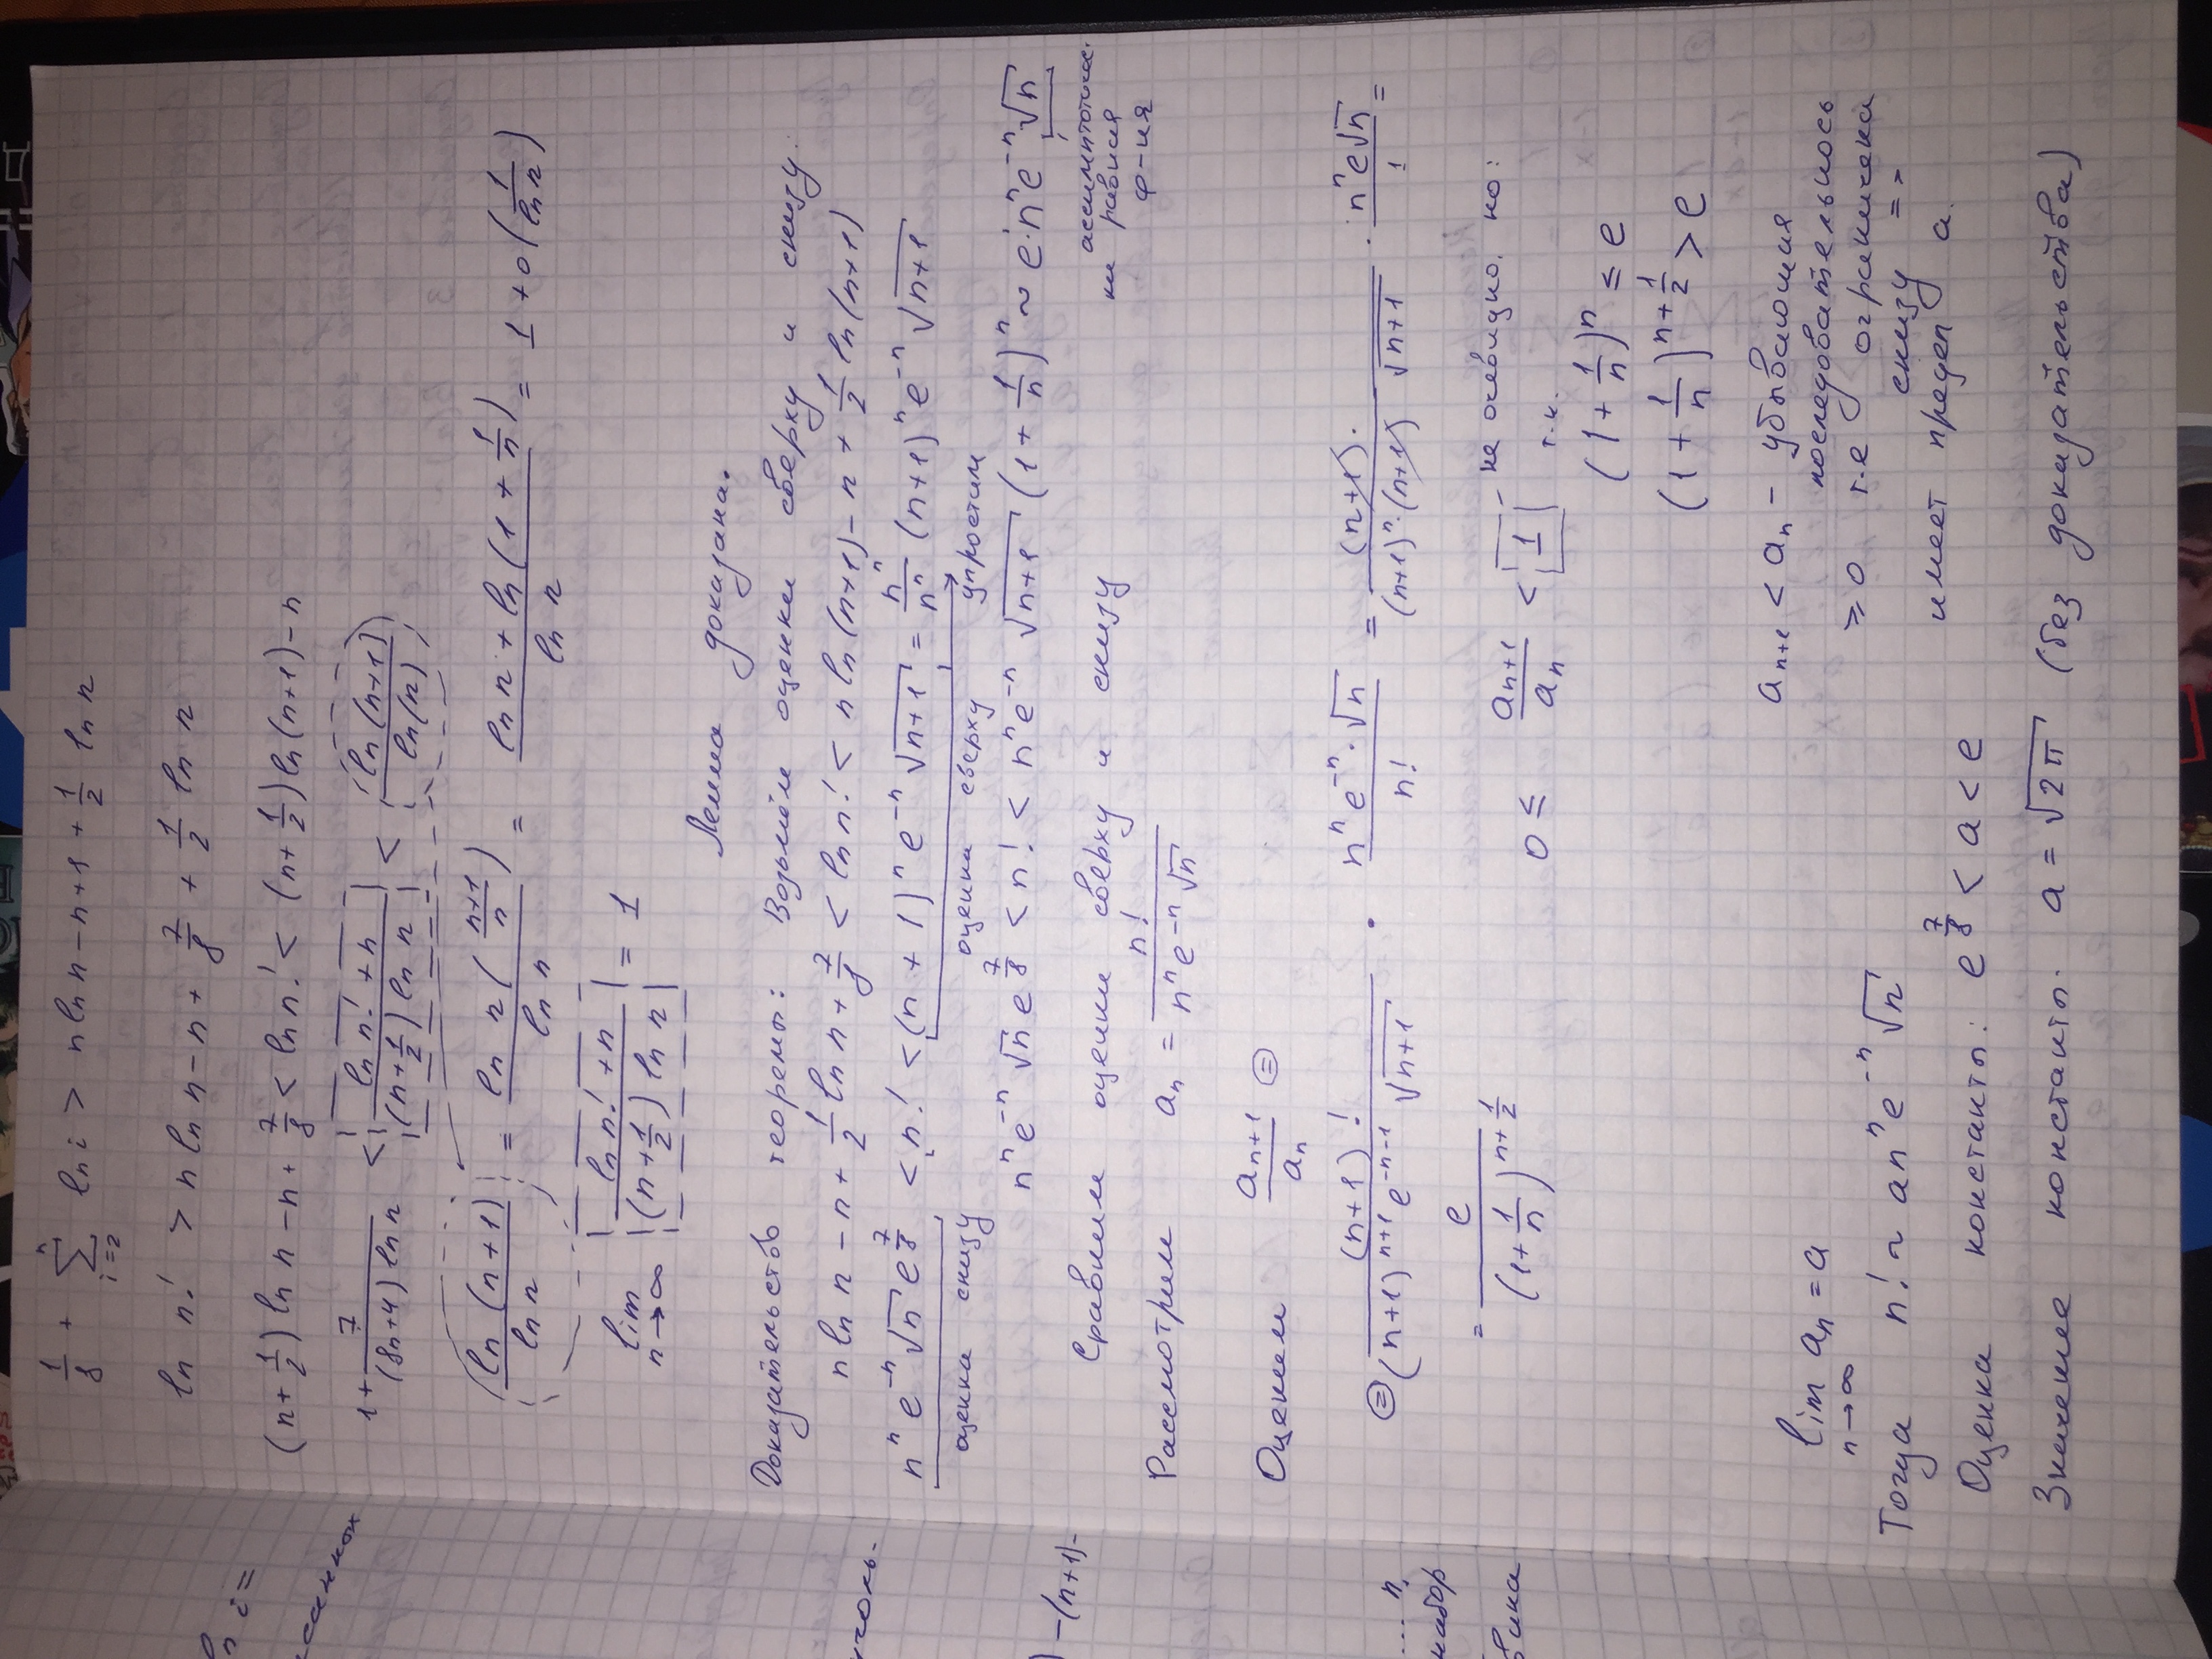 1/8 + ∑_{i=2}^{n} ln i > n ln n − n + 1 + 1/2 ln n
ln n! > n ln n − n + 7/8 + 1/2 ln n
(n + 1/2) ln n − n + 7/8 < ln n! < (n + 1/2) ln(n+1) − n
1 + 7/((8n+4) ln n) < (ln n! + n)/((n + 1/2) ln n) < ln(n+1)/ln(n)
ln(n+1)/ln n = ln n((n+1)/n)/ln n = (ln n + ln(1 + 1/n))/ln n = 1 + o(1/ln n)
lim_{n→∞} (ln n! + n)/((n + 1/2) ln n) = 1
Лемма доказана.
Доказательство теоремы: Возьмём оценки сверху и снизу.
n ln n − n + 1/2 ln n + 7/8 < ln n! < n ln(n+1) − n + 1/2 ln(n+1)
n^n e^{−n} √n e^{7/8} < n! < (n + 1)^n e^{−n} √(n+1) = n^n/n^n (n+1)^n e^{−n} √(n+1)
оценка снизу оценка сверху упростим
n^n e^{−n} √n e^{7/8} < n! < n^n e^{−n} √(n+1) (1 + 1/n)^n ~ e·n^n e^{−n} √n
ассимптотичес-
ки равная
ф-ия
Сравним оценки сверху и снизу
Рассмотрим a_n = n!/(n^n e^{−n} √n)
Оценим a_{n+1}/a_n =
= (n+1)!/((n+1)^{n+1} e^{−n−1} √(n+1)) · (n^n e^{−n} · √n)/n! = (n+1)·/((n+1)^n · (n+1) √(n+1)) · (n^n e √n)/1 =
= e/(1 + 1/n)^{n + 1/2}
0 ≤ a_{n+1}/a_n < 1
не очевидно, но:
т.к.
(1 + 1/n)^n ≤ e
(1 + 1/n)^{n + 1/2} > e
a_{n+1} < a_n − убывающая
последовательнось
≥ 0 т.е ограничена
снизу =>
имеет предел a.
lim_{n→∞} a_n = a
Тогда n! ~ a n^n e^{−n} √n
Оценка константы: e^{7/8} < a < e
Значение константы. a = √(2π) (без доказательства)
n i =
санных
) −(n+1)−
.... n,
набор